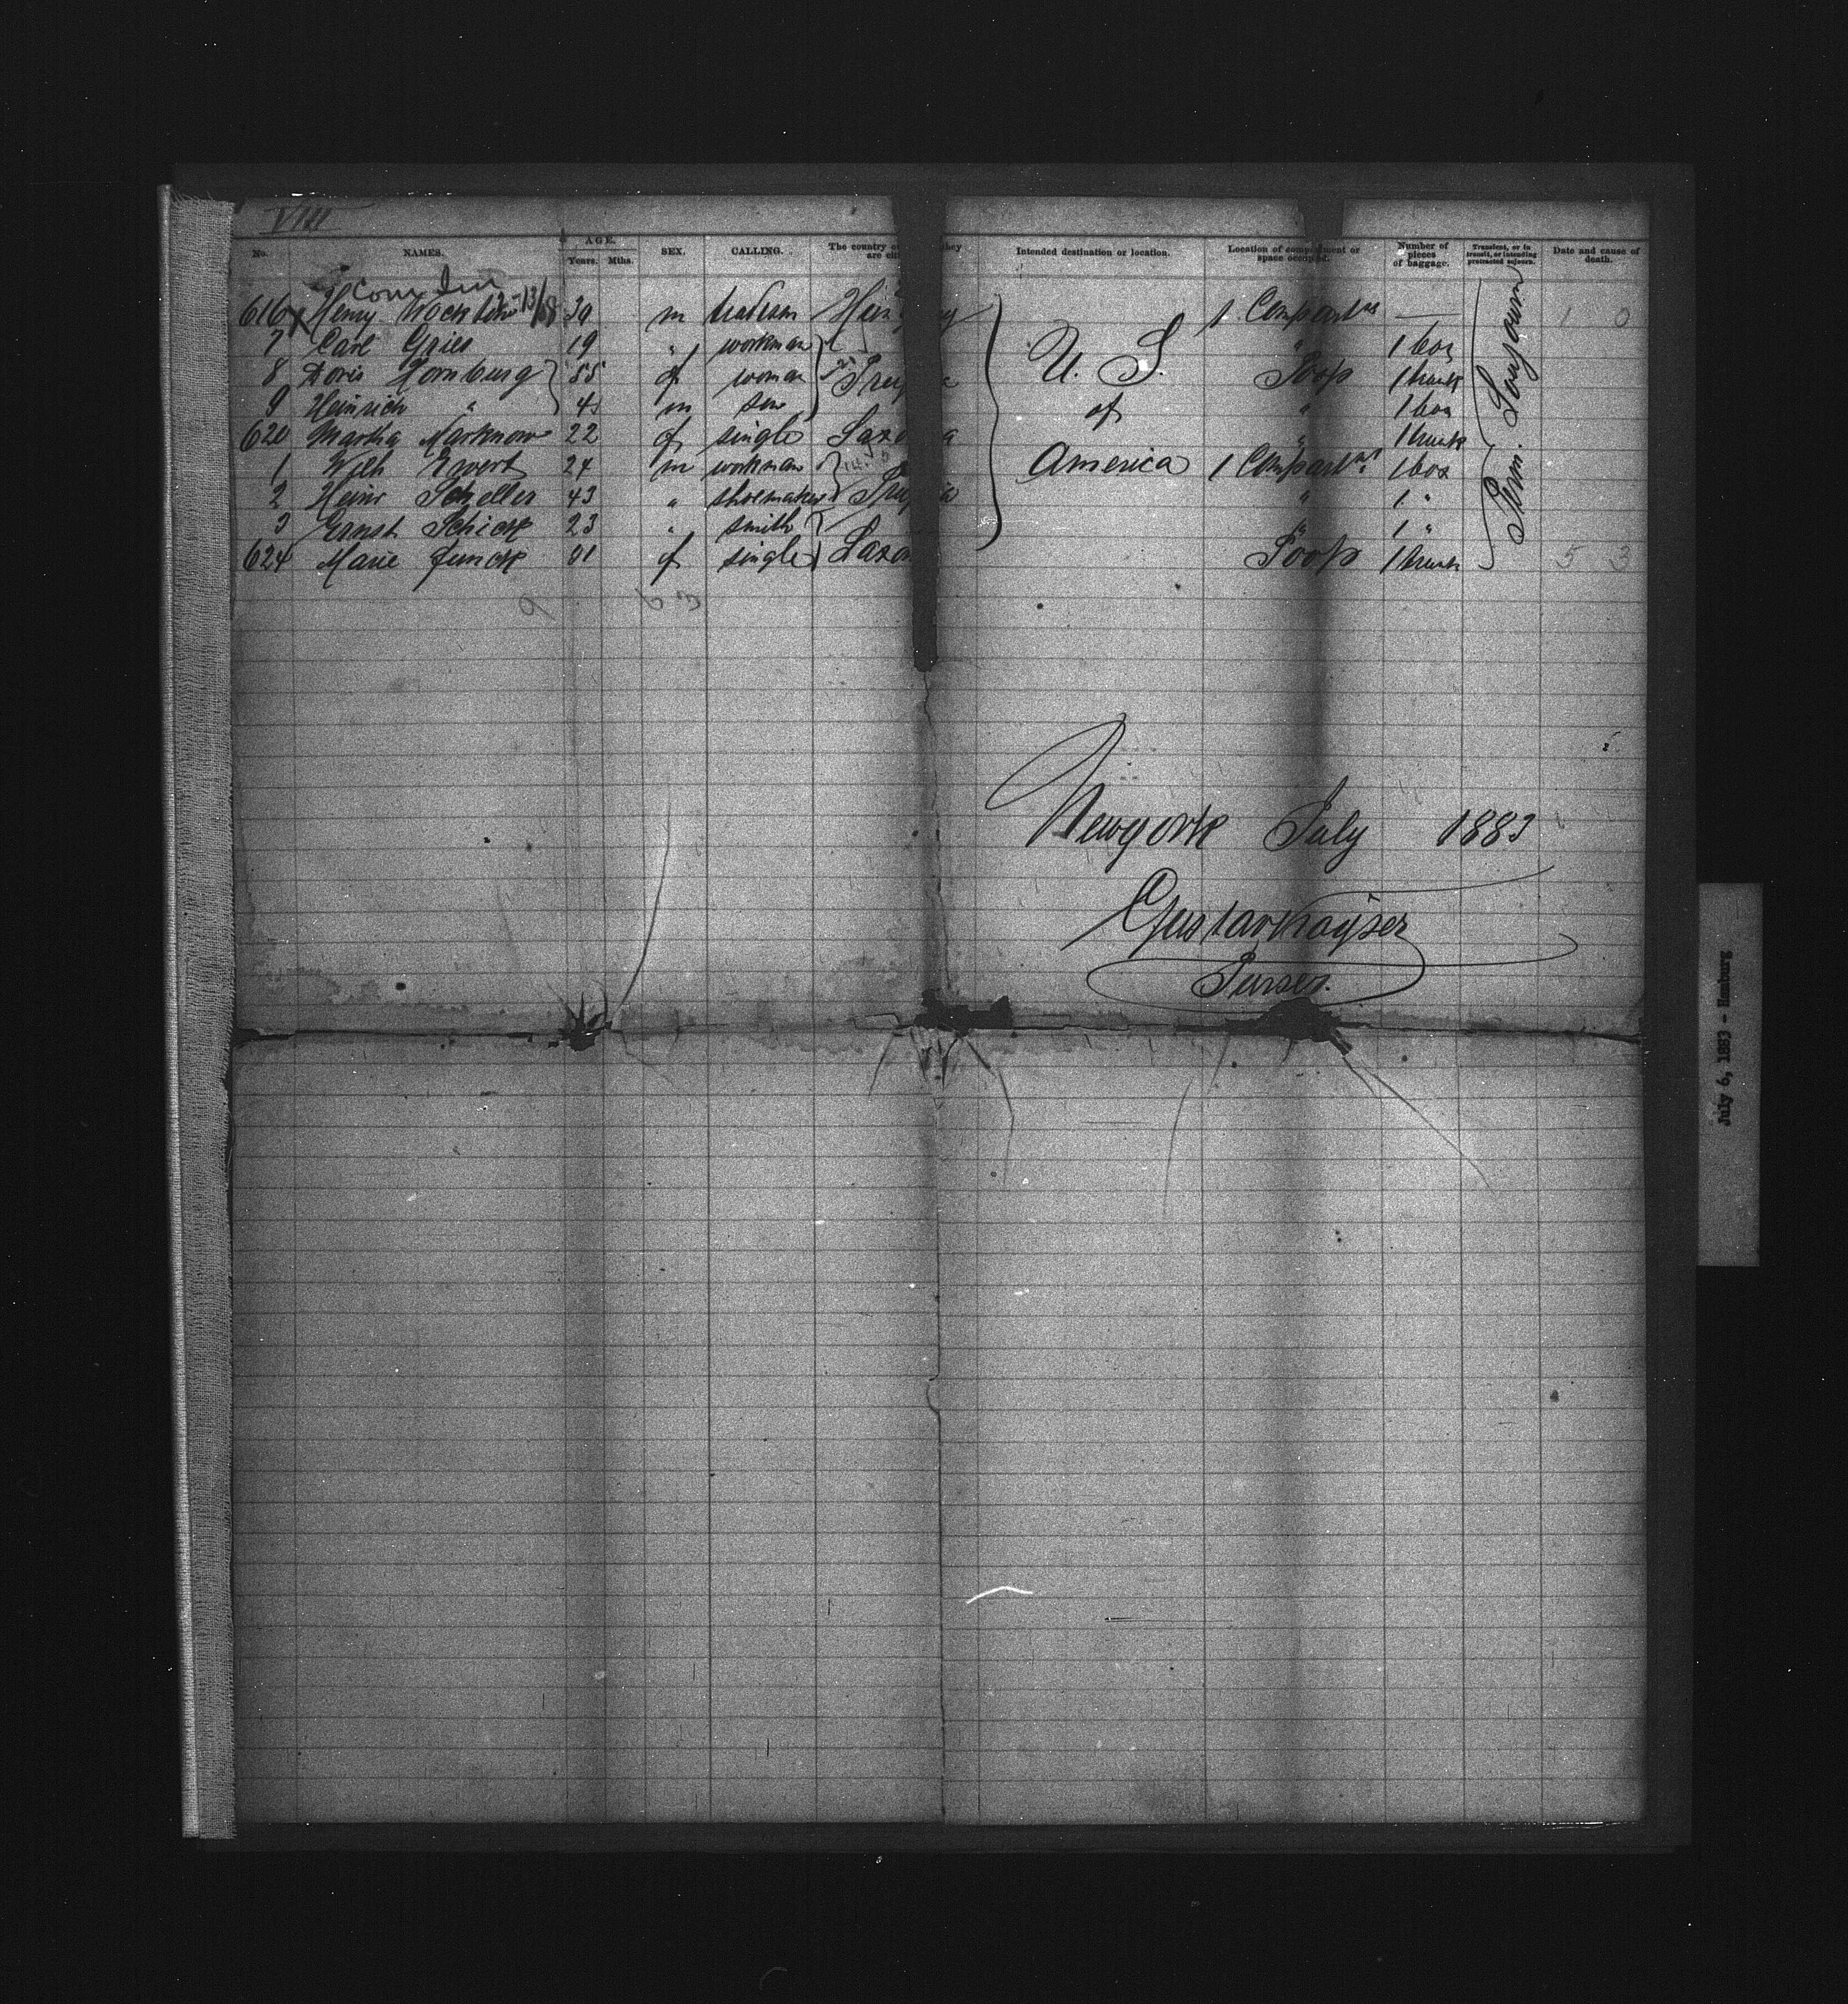 VIII
No. NAMES. AGE. Years. Mths. SEX. CALLING. The country of they are cit Intended destination or location. Location of compartment or space occupied. Number of pieces of baggage. Transient, or in transit, or intending protracted sojourn. Date and cause of death.
616 Henry 39 m 1 Compart 1 0
7 Carl Gries 19 " workman " 1 box
8 Doris Hornburg 55 f woman U. S. Poop 1 trunk
9 Heinrich " 4 m son of " 1 box
620 Martha Marknow 22 f single " 1 trunk
1 Wilh Ewert 24 m workman America 1 Compart 1 box
2 Heinr Scheller 43 " shoemaker " 1 "
3 Ernst Schick 23 " smith " 1 "
624 Marie Junck 21 f single Poop 1 trunk 5 3
Perm. Soujourn
9 6 3
Newyork July 1883
Gustav Kayser
Purser.
July 6, 1883 - Hamburg